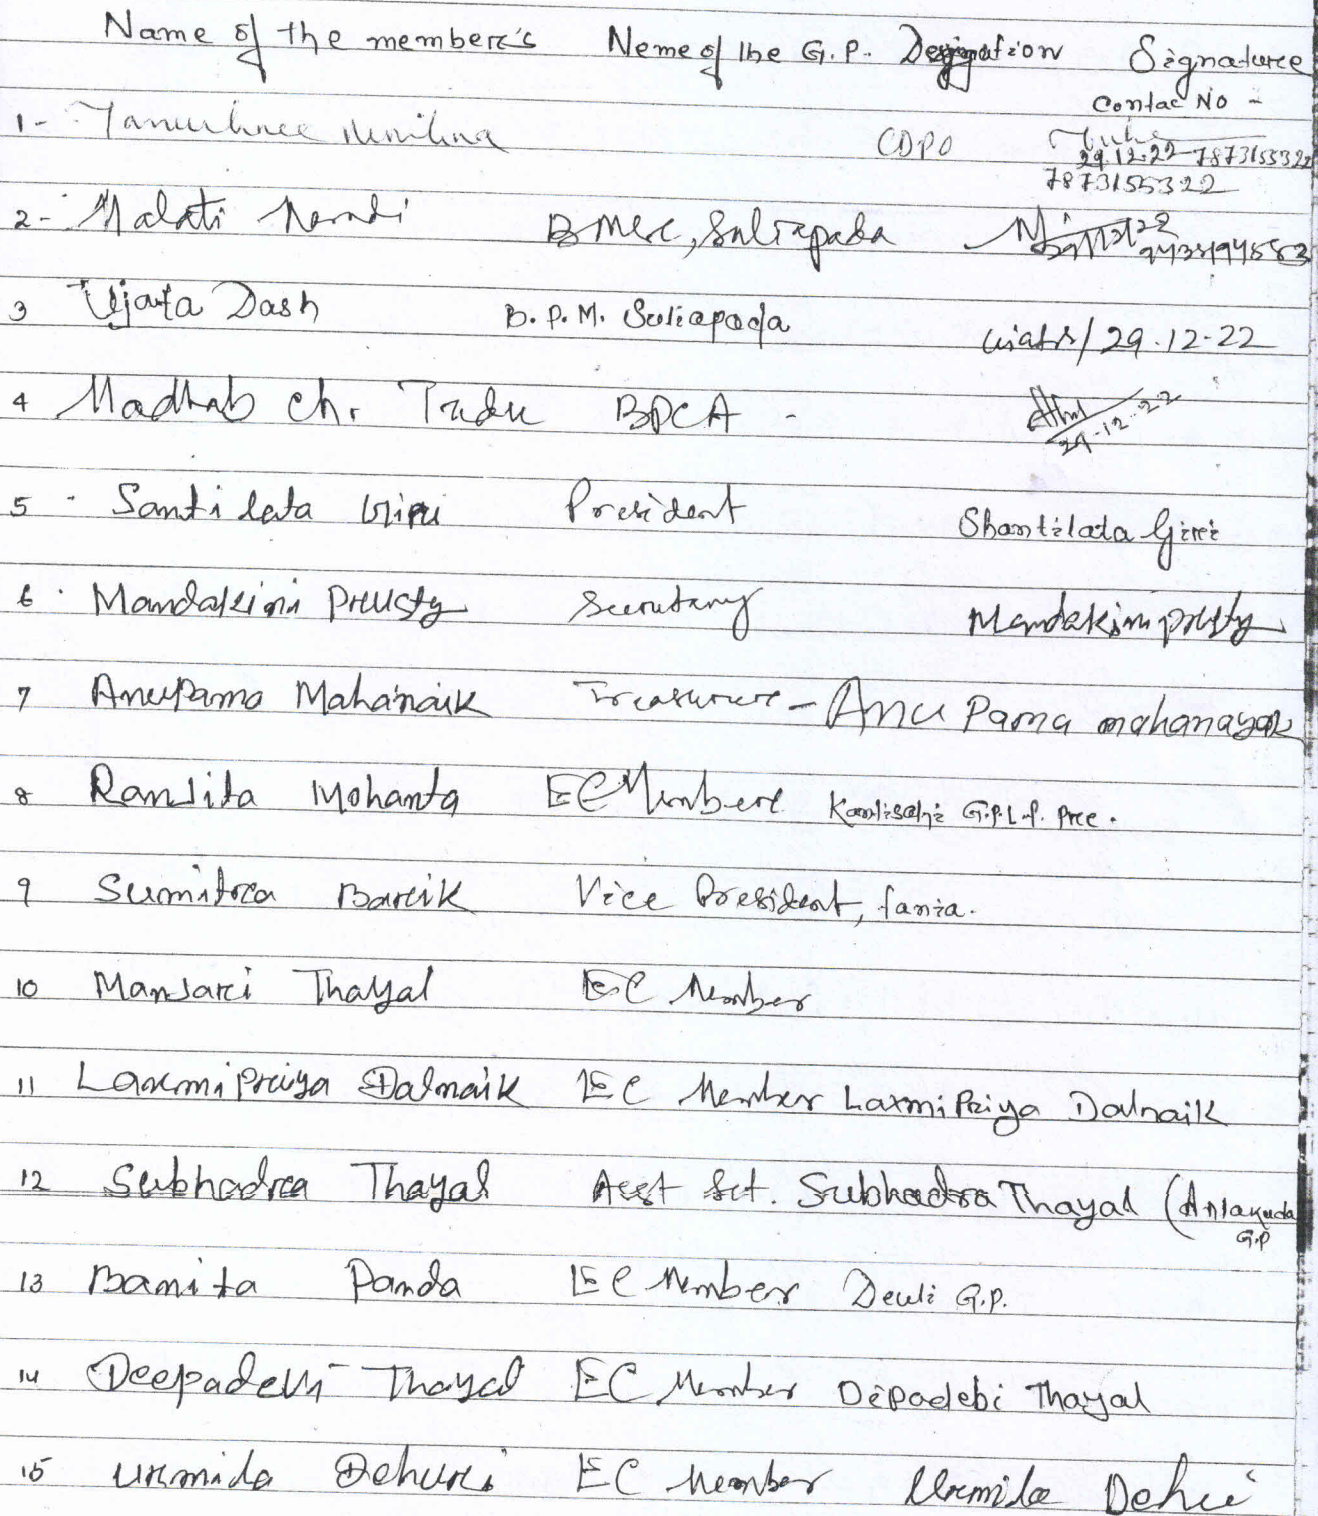 Name of the member's Neme of the G.P. Designation Signature
Contac No -
1- CDPO
29.12.22 7873155322
7873155322
2- Malati BMEC, Suliapada
3 Ujata Dash B.P.M. Suliapada 29.12.22
4 Madhab Ch. Tudu BPCA -
29-12-22
5 Santi lata Giri President Shantilata Giri
6 Mandakini Prusty Secrutary Mandakini prusty
7 Anupama Mahanaik Treasurure - Anu Pama mahanayak
8 Ranjita Mohanta EC Member G.P.L.F. Pre.
9 Sumitra Barik Vice President, fania.
10 Manjari Thayal EC Member
11 LaxmiPriya Dalnaik EC Member LaxmiPriya Dalnaik
12 Subhadra Thayal Asst Sct. Subhadra Thayal (Anlakuda
G.P
13 Bamita Panda EC Member Deuli G.P.
14 Deepadevi Thayal EC Member Dipadebi Thayal
15 Urmida Dehuri EC Member Urmila